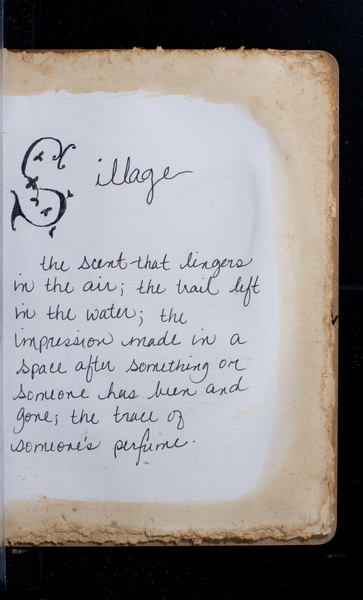 Sillage
the scent that lingers
in the air; the trail left
in the water; the
impression made in a
space after something or
someone has been and
gone; the trace of
someone's perfume.